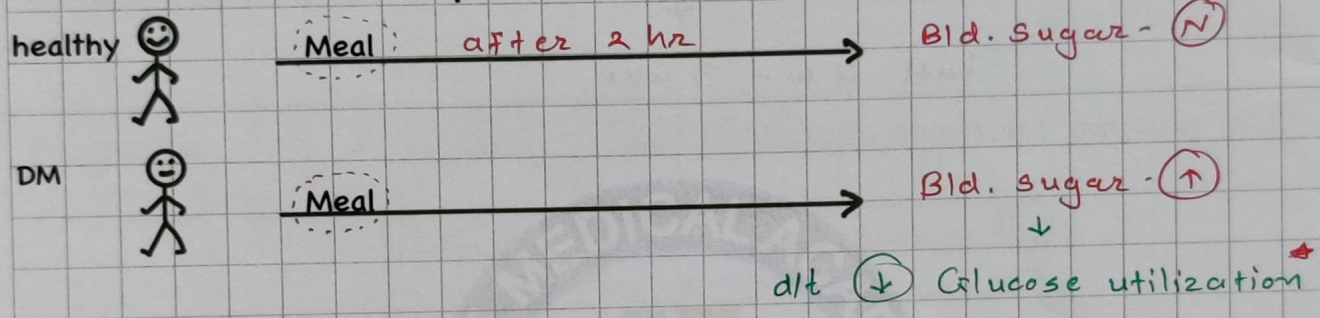 healthy Meal after 2 hr Bld. Sugar - N
DM Meal Bld. sugar - ↑
↓
d/t ↓ Glucose utilization*
MEDICAL